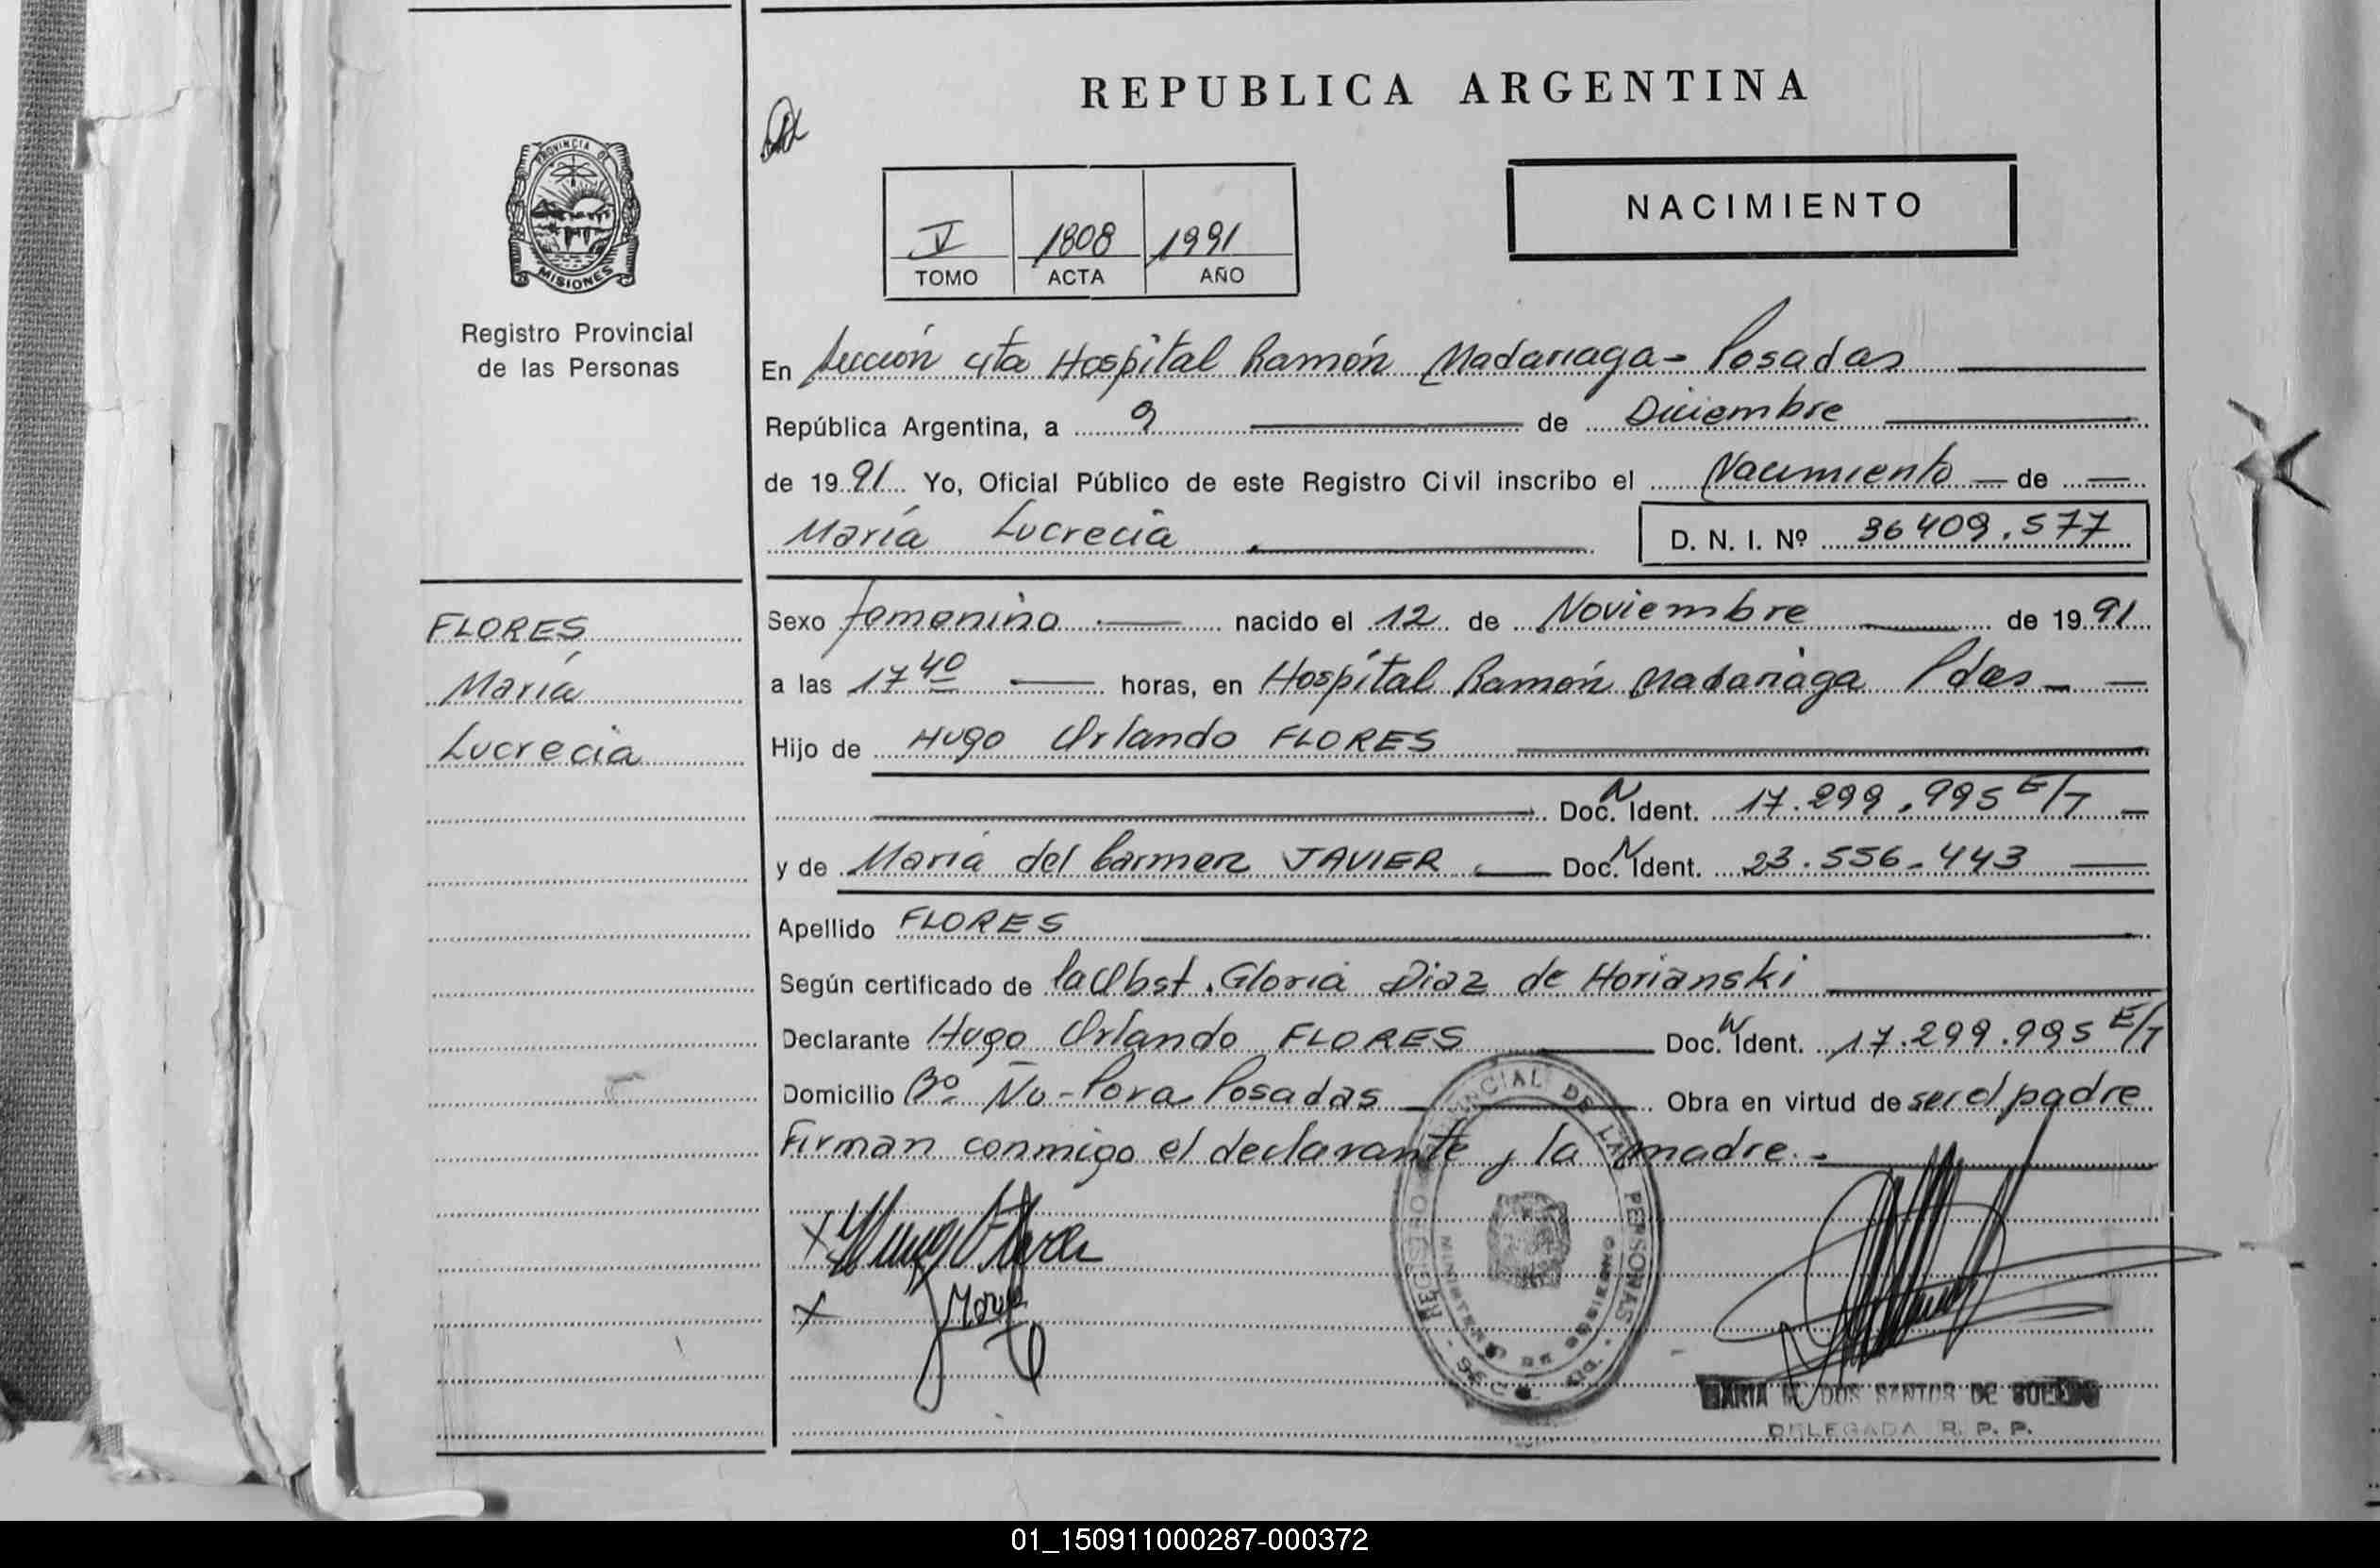 REPUBLICA ARGENTINA
PROVINCIA DE
MISIONES
Registro Provincial
de las Personas
V 1808 1991
TOMO ACTA AÑO
NACIMIENTO
En Sección 4ta Hospital Ramón Madariaga - Posadas
República Argentina, a 9 de Diciembre
de 1991 Yo, Oficial Público de este Registro Civil inscribo el Nacimiento de
María Lucrecia D. N. I. Nº 36409.577
FLORES
María
Lucrecia
Sexo femenino nacido el 12 de Noviembre de 1991
a las 17 40 horas, en Hospital Ramón Madariaga Pdas
Hijo de Hugo Orlando FLORES
Doc. N Ident. 17.299.995 E/T
y de María del Carmen JAVIER Doc. N Ident. 23.556.443
Apellido FLORES
Según certificado de la Obst. Gloria Diaz de Horianski
Declarante Hugo Orlando FLORES Doc. N Ident. 17.299.995 E/T
Domicilio Bº Ñu-Pora Posadas Obra en virtud de ser el padre
Firman conmigo el declarante y la madre.-
REGISTRO PROVINCIAL DE LAS PERSONAS
MINISTERIO DE GOBIERNO
MARIA DOS SANTOS DE
DELEGADA R. P. P.
01_150911000287-000372